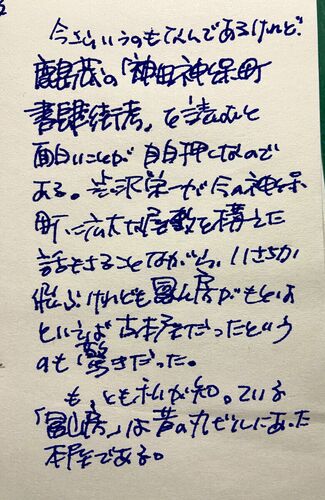 今さらいうのもなんであるけれど、
鹿島茂の「神田神保町
書肆街考」を読むと
面白いことが目白押しなので
ある。渋沢栄一が今の神保
町に広大な屋敷を構えた
話もさることながら、いささか
飛ぶけれども冨山房がもとは
といえば古本屋だったという
のも驚きだった。
もっとも私が知っている
「冨山房」は昔の丸ビルにあった
本屋である。